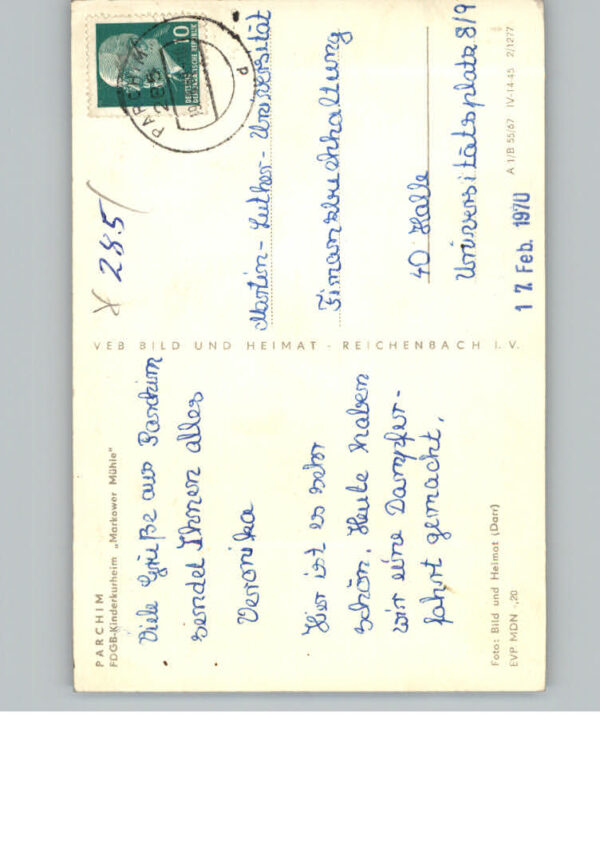 PARCHIM
FDGB-Kinderkurheim „Markower Mühle"
Viele Grüße aus Parchim
sendet Ihnen alles
Veronika
Hier ist es sehr
schön. Heute haben
wir eine Dampfer-
fahrt gemacht.
Foto: Bild und Heimat (Darr)
EVP MDN -,20
VEB BILD UND HEIMAT - REICHENBACH I. V.
285
PARCHIM
10
DEUTSCHE
DEMOKRATISCHE REPUBLIK
Martin-Luther-Universität
Finanzbuchhaltung
40 Halle
Universitätsplatz 8/9
A 1/B 55/67 IV-14-45 2/1277
17. Feb. 1970